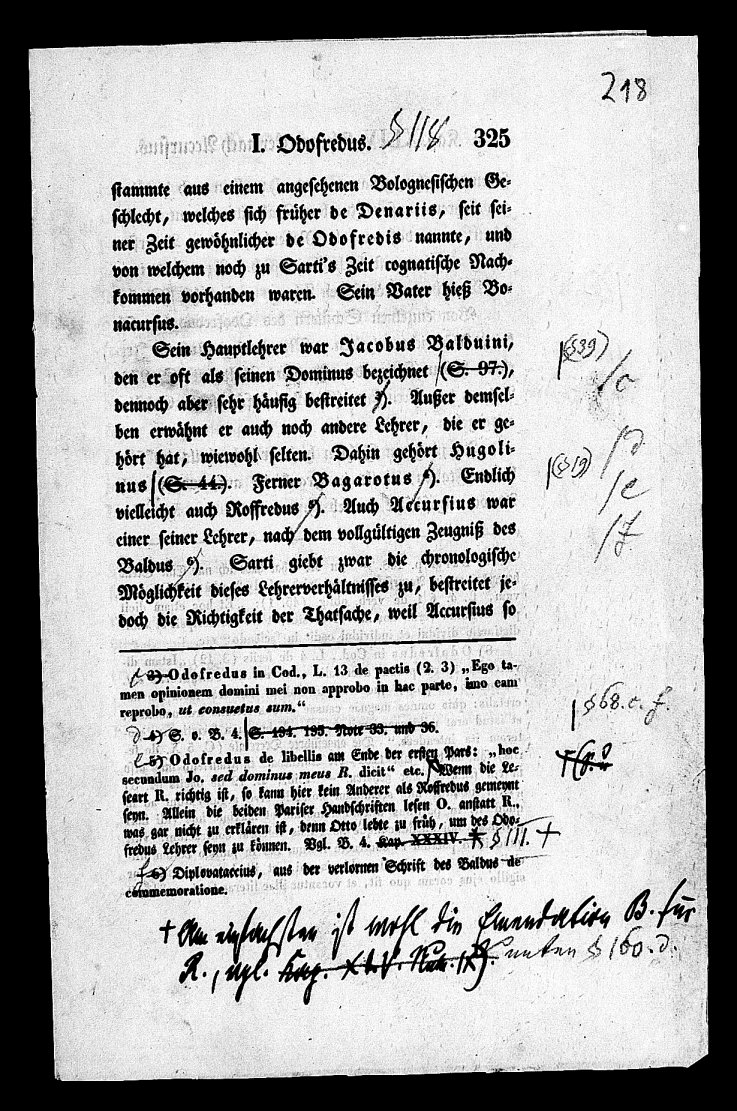 218
I. Odofredus. § 118 325
stammte aus einem angesehenen Bolognesischen Ge-
schlecht, welches sich früher de Denariis, seit sei-
ner Zeit gewöhnlicher de Odofredis nannte, und
von welchem noch zu Sarti's Zeit cognatische Nach-
kommen vorhanden waren. Sein Vater hieß Bo-
nacursus.
Sein Hauptlehrer war Jacobus Balduini,
den er oft als seinen Dominus bezeichnet (S. 97.), (§39)
dennoch aber sehr häufig bestreitet 3). Außer demsel- /c
ben erwähnt er auch noch andere Lehrer, die er ge-
hört hat, wiewohl selten. Dahin gehört Hugoli-
nus (S. 44.). Ferner Bagarotus 4). Endlich (§19) /d
vielleicht auch Roffredus 5). Auch Accursius war /e
einer seiner Lehrer, nach dem vollgültigen Zeugniß des
Baldus 6). Sarti giebt zwar die chronologische /f
Möglichkeit dieses Lehrerverhältnisses zu, bestreitet je-
doch die Richtigkeit der Thatsache, weil Accursius so
c 3) Odofredus in Cod., L. 13 de pactis (2. 3) „Ego ta-
men opinionem domini mei non approbo in hac parte, imo eam
reprobo, ut consuetus sum.“
d 4) S. o. B. 4. S. 194. 195. Note 33. und 36. § 68. e. f.
e 5) Odofredus de libellis am Ende der ersten Pars: „hoc
secundum Jo. sed dominus meus R. dicit“ etc. Wenn die Le-
seart R. richtig ist, so kann hier kein Anderer als Roffredus gemeynt
seyn. Allein die beiden Pariser Handschriften lesen O. anstatt R.,
was gar nicht zu erklären ist, denn Otto lebte zu früh, um des Odo-
fredus Lehrer seyn zu können. Vgl. B. 4. Kap. XXXIV. § 111. +
f 6) Diplovataccius, aus der verlornen Schrift des Baldus de
commemoratione.
+ Am einfachsten ist wohl die Emendation B. für
R., vgl. Kap. XLV. unten § 160. d.